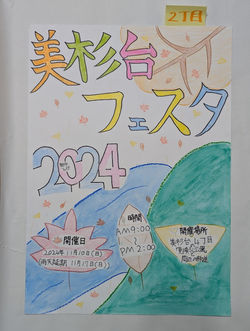 2丁目
美杉台
フェスタ
2024
開催日
2024年 11月10日(日)
(雨天延期 11月17日(日))
時間
AM9:00
~
PM2:00
開催場所
美杉台4丁目